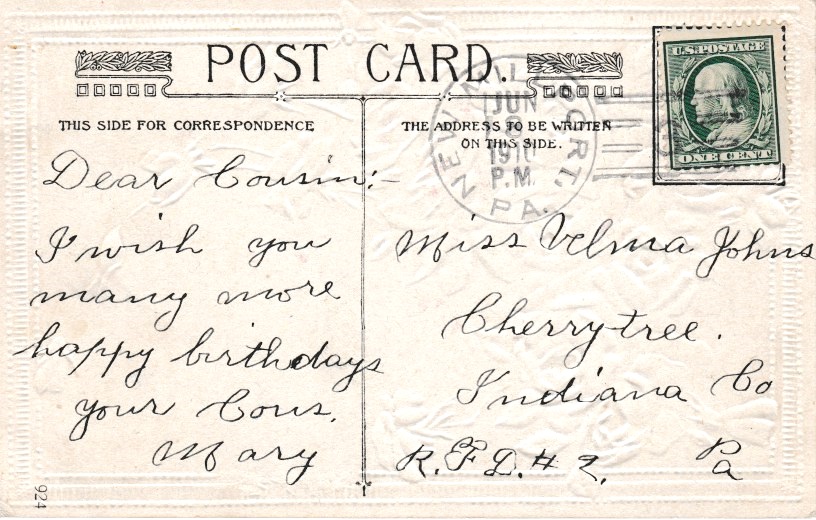 POST CARD.
THIS SIDE FOR CORRESPONDENCE
THE ADDRESS TO BE WRITTEN
ON THIS SIDE.
U.S. POSTAGE
ONE CENT
JUN
8
1910
P.M.
PA.
Dear Cousin:-
I wish you
many more
happy birthdays
your Cous.
Mary
Miss Velma Johns
Cherrytree.
Indiana Co
R.F.D. # 2. Pa
924